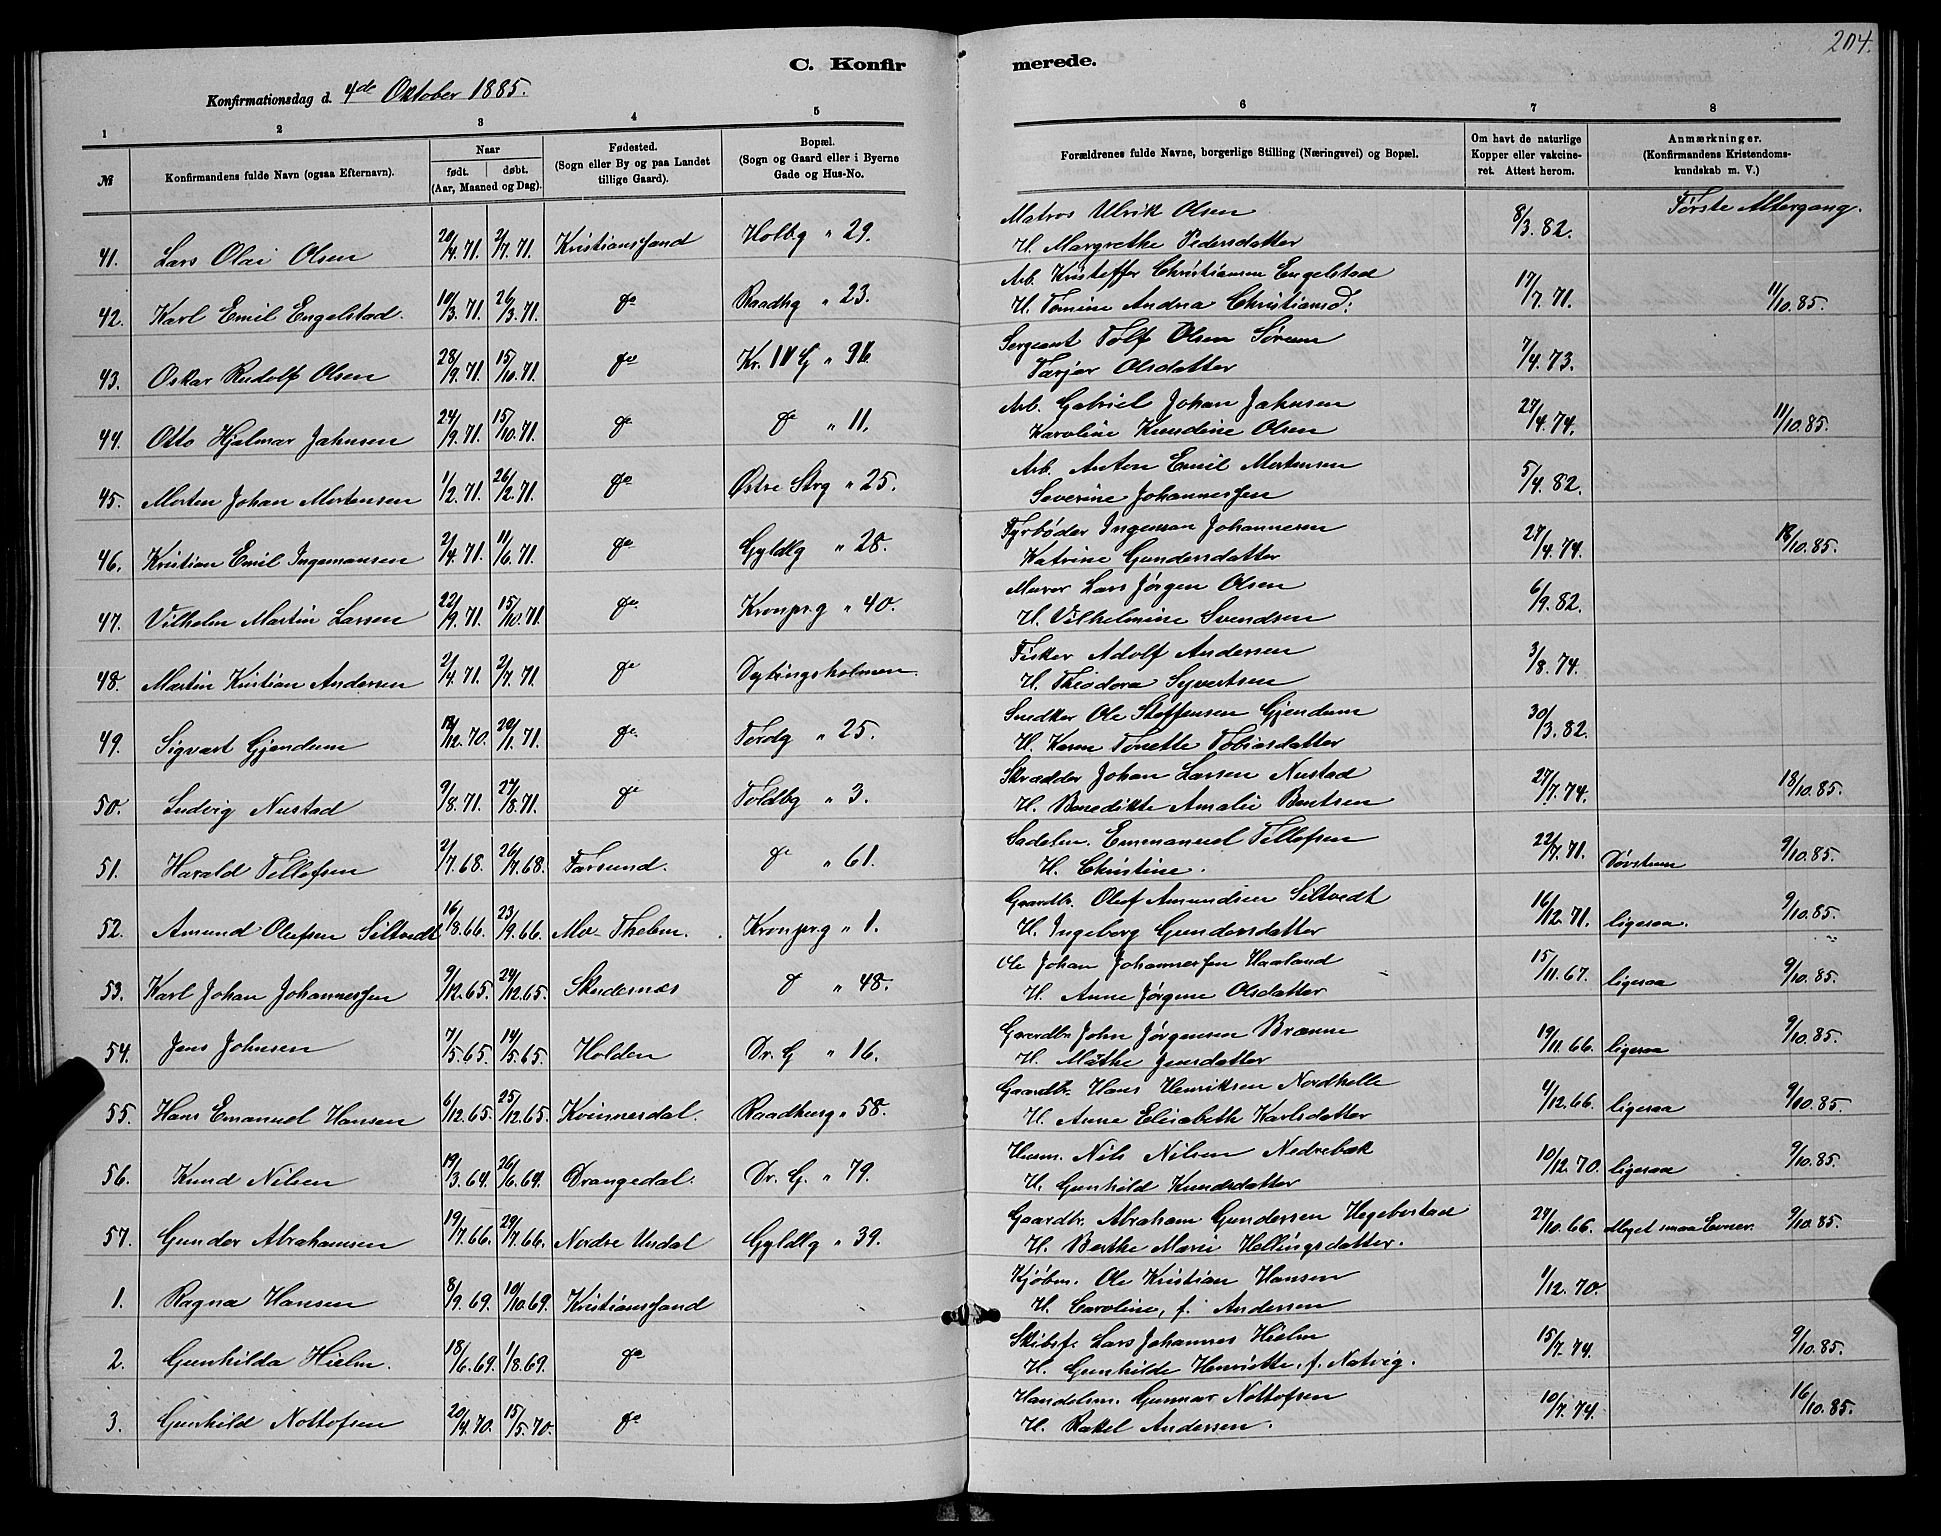 204.
C. Konfirmerede.
Konfirmationsdag d. 4de Oktober 1885.
1 2 3 4 5 6 7 8
№ Konfirmandens fulde Navn (ogsaa Efternavn). Naar født. døbt. (Aar, Maaned og Dag). Fødested. (Sogn eller By og paa Landet tillige Gaard). Bopæl. (Sogn og Gaard eller i Byerne Gade og Hus-No. Forældrenes fulde Navne, borgerlige Stilling (Næringsvei) og Bopæl. Om havt de naturlige Kopper eller vakcineret. Attest herom. Anmærkninger. (Konfirmandens Kristendomskundskab m. V.)
Første Altergang.
41. Lars Olai Olsen 20/4.71. 2/7.71. Kristianssand Holbg " 29. Matros Ulrik Olsen 8/3.82.
H. Margrethe Pedersdatter
42. Karl Emil Engelstad. 10/3.71. 26/3.71. do Raadhg " 23. Arb. Kristoffer Christiansen Engelstad 17/7.71. 11/10.85.
H. Tomine Andrea Christiansd:
43. Oskar Rudolf Olsen 28/9.71. 15/10.71. do Kr. IV G " 96 Sergeant Tolf Olsen Sørum 7/4.73.
Tarjer Olsdatter
44. Otto Hjalmar Jahnsen 24/9.71. 15/10.71. do do " 11. Arb. Gabriel Johan Jahnsen 27/4.74. 11/10.85.
Karoline Knudine Olsen
45. Morten Johan Mortensen 1/2.71. 26/2.71. do Østre Strg " 25. Arb. Anton Emil Mortensen 5/4.82.
Severine Johannessen
46. Kristian Emil Ingemansen 2/4.71. 11/6.71. do Gyldlg " 28. Fyrbøder Ingeman Johannesen 27/4.74. 18/10.85.
Katrine Gundersdatter
47. Vilhelm Martin Larsen 22/9.71. 15/10.71. do Kronprg " 40. Murer Lars Jørgen Olsen 6/9.82.
H. Vilhelmine Svendsen
48. Martin Kristian Andersen 2/4.71. 2/7.71. do Dybingsholmen. Fisker Adolf Andersen 3/8.74.
H. Theodora Syvertsen
49. Sigvart Gjendum 18/12.70. 29/1.71. do Tordg " 25. Snedker Ole Steffensen Gjendum 30/3.82.
H. Karen Tonette Tobiasdatter
50. Ludvig Nustad 9/8.71. 27/8.71. do Toldbg " 3. Skrædder Johan Larsen Nustad 27/7.74. 18/10.85.
H. Benedikte Amalie Bentsen
51. Harald Tellefsen 2/7.68. 26/7.68. Farsund. do " 61. Sadelm. Emmanuel Tellefsen 22/7.71. Døvstum 9/10.85.
H. Christine.
52. Amund Olufsen Siltvedt 16/8.66. 23/9.66. Mo Thelm. Kronprg " 1. Gaardbr. Oluf Amundsen Siltvedt 16/12.71. ligesaa. 9/10.85.
H. Ingeborg Gundersdatter
53. Karl Johan Johannessen 9/12.65. 24/12.65. Skudernæs do " 48. Ole Johan Johannessen Haaland 15/11.67. ligesaa 9/10.85.
H. Anne Jørgine Olsdatter
54. Jens Johnsen 7/5.65. 14/5.65. Holden Dr. G " 16. Gaardbr. John Jørgensen Brænne 19/11.66. ligesaa 9/10.85.
H. Mathe Jensdatter
55. Hans Emanuel Hansen 6/12.65. 25/12.65. Kvinnesdal. Raadhusg " 58. Gaardbr. Hans Henriksen Nordhelle 4/12.66. ligesaa 9/10.85.
H. Anne Elisabeth Karlsdatter
56. Knud Nilsen 19/3.64. 26/6.64. Drangedal. Dr. G. " 79. Husm. Nils Nilsen Nedrebæk 10/12.70. ligesaa 9/10.85.
H. Gunhild Knudsdatter
57. Gunder Abrahamsen 19/7.66. 29/7.66. Nordre Undal Gyldlg " 39. Gaardbr. Abraham Gundersen Hegebostad 27/10.66. Meget smaa Evner. 9/10.85.
H. Berthe Marie Hellingsdatter.
1. Ragna Hansen 8/9.69. 10/10.69. Kristianssand Kjøbm. Ole Kristian Hansen 1/12.70.
H. Caroline, f. Andersen
2. Gunhilda Hielm. 18/6.69. 1/8.69. do Skibsf. Lars Johannes Hielm 15/7.74. 9/10.85.
H. Gunhilde Henriette, f. Natvig.
3. Gunhild Nottofsen 20/4.70. 15/5.70. do Handelsm. Gunnar Nottofsen 10/7.74. 16/10.85.
H. Rakel Andersen.